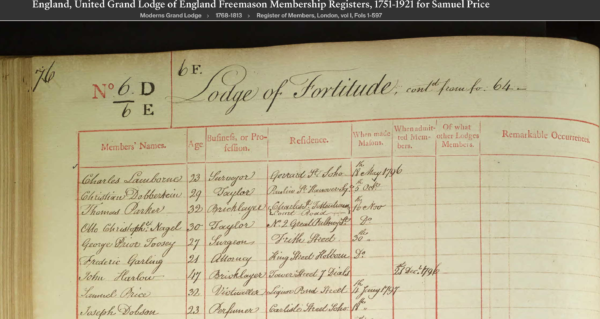 England, United Grand Lodge of England Freemason Membership Registers, 1751-1921 for Samuel Price
Moderns Grand Lodge › 1768-1813 › Register of Members, London, vol I, Fols 1-597
76
6 F.
No 6 D
6 E
Lodge of Fortitude, contd from fo. 64.
Members' Names. Age Business, or Profession. Residence. When made Masons. When admitted Members. Of what other Lodges Members. Remarkable Occurrences
Charles Lamborne 23 Surveyor Gerrard St Soho May 1796
Christian Dobberstein 29 Taylor Hanover Octr
Thomas Parker 32 Bricklayer Charles St Tottenham Court Road 10 Nov
Otto Christoph Nagel 30 Taylor No 2 Great St Do
George Prior Toosey 27 Surgeon Frith Street 30
Frederic Garling 21 Attorney King Street Holborn Do
John Harlow 47 Bricklayer Tower Street 7 Dials Decr 1796
Samuel Price 32 Victualler Street 1797
Joseph Dobson 23 Perfumer Carlisle Street Soho